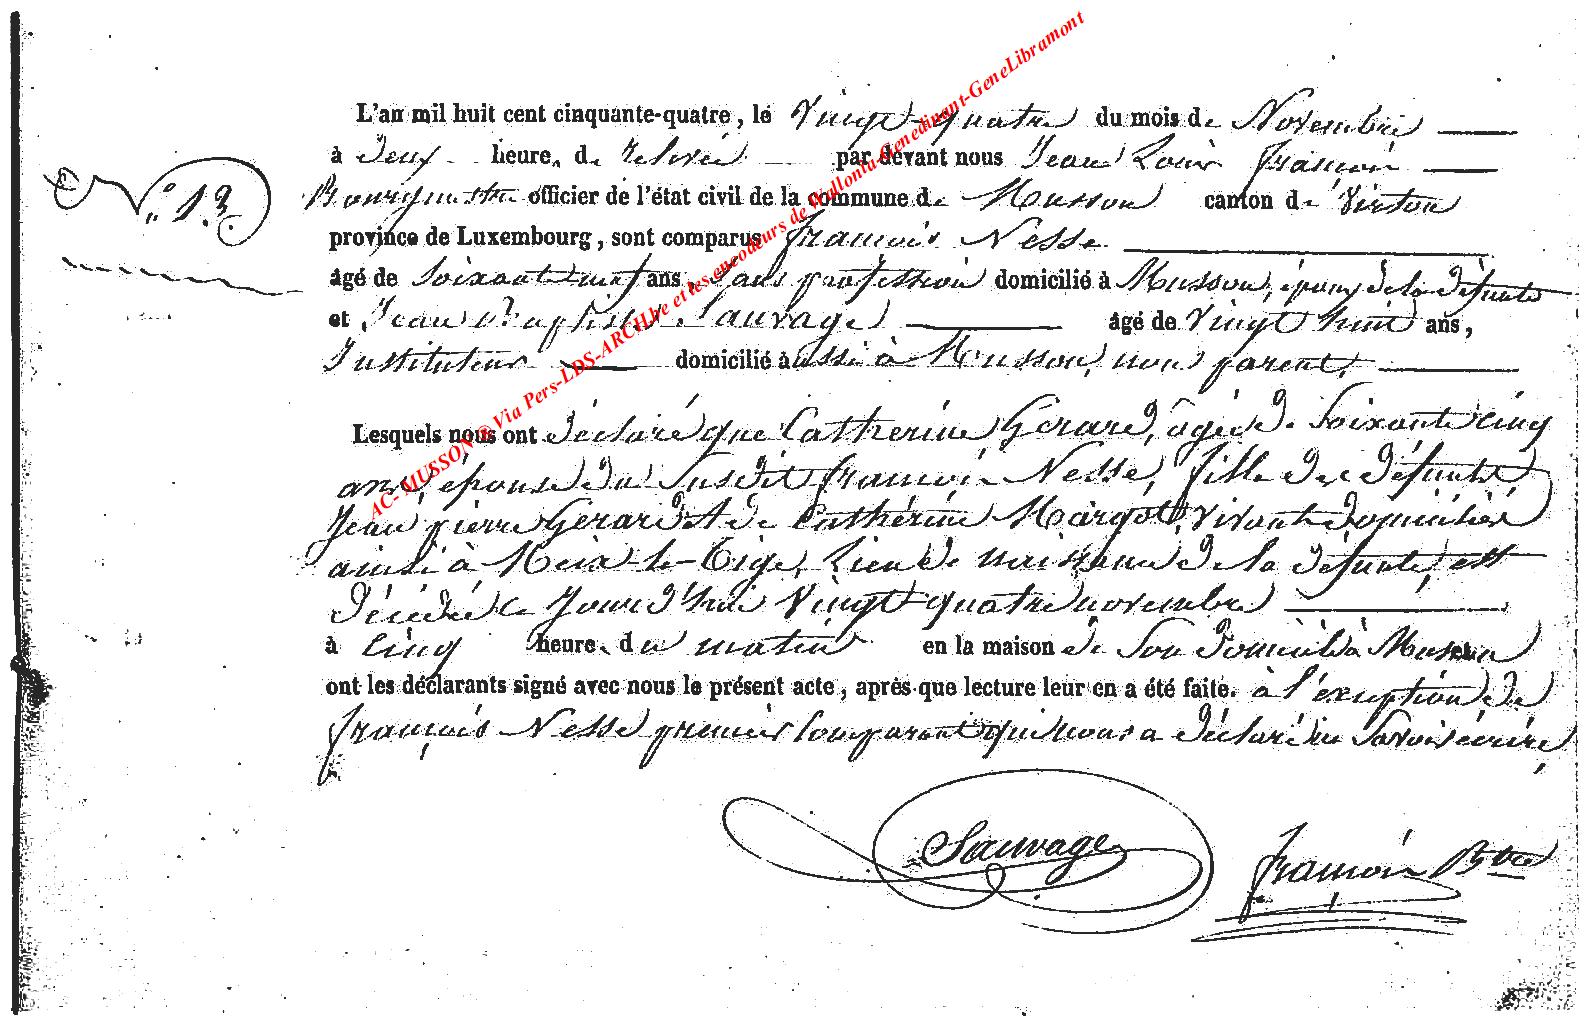 L'an mil huit cent cinquante-quatre, le Vingt-quatre du mois de Novembre
à deux heures de relevée par devant nous Jean Louis François
N.° 13.
Bourgmestre officier de l'état civil de la commune de Musson canton de Virton
province de Luxembourg, sont comparus François Nesse
âgé de soixante-neuf ans, sans profession domicilié à Musson, époux de la défunte
et Jean Baptiste Sauvage âgé de Vingt huit ans,
Instituteur domicilié aussi à Musson, non parent,
Lesquels nous ont déclaré que Catherine Gérard, âgée de soixante cinq
ans, épouse du susdit François Nesse, fille de défunts
Jean pierre Gérard et de Catherine Margot, vivant domiciliés
ainsi à Meix-le-Tige, lieu de naissance de la défunte, est
décédée ce jourd'hui Vingt-quatre novembre
à cinq heures du matin en la maison de son domicile à Musson
ont les déclarants signé avec nous le présent acte, après que lecture leur en a été faite. à l'exception de
François Nesse premier comparant qui nous a déclaré ne savoir écrire,
Sauvage
François Btre
AC-MUSSON ® Via Pers-LDS-ARCH.be et les encodeurs de Wallonia-Genedinant-GeneLibramont